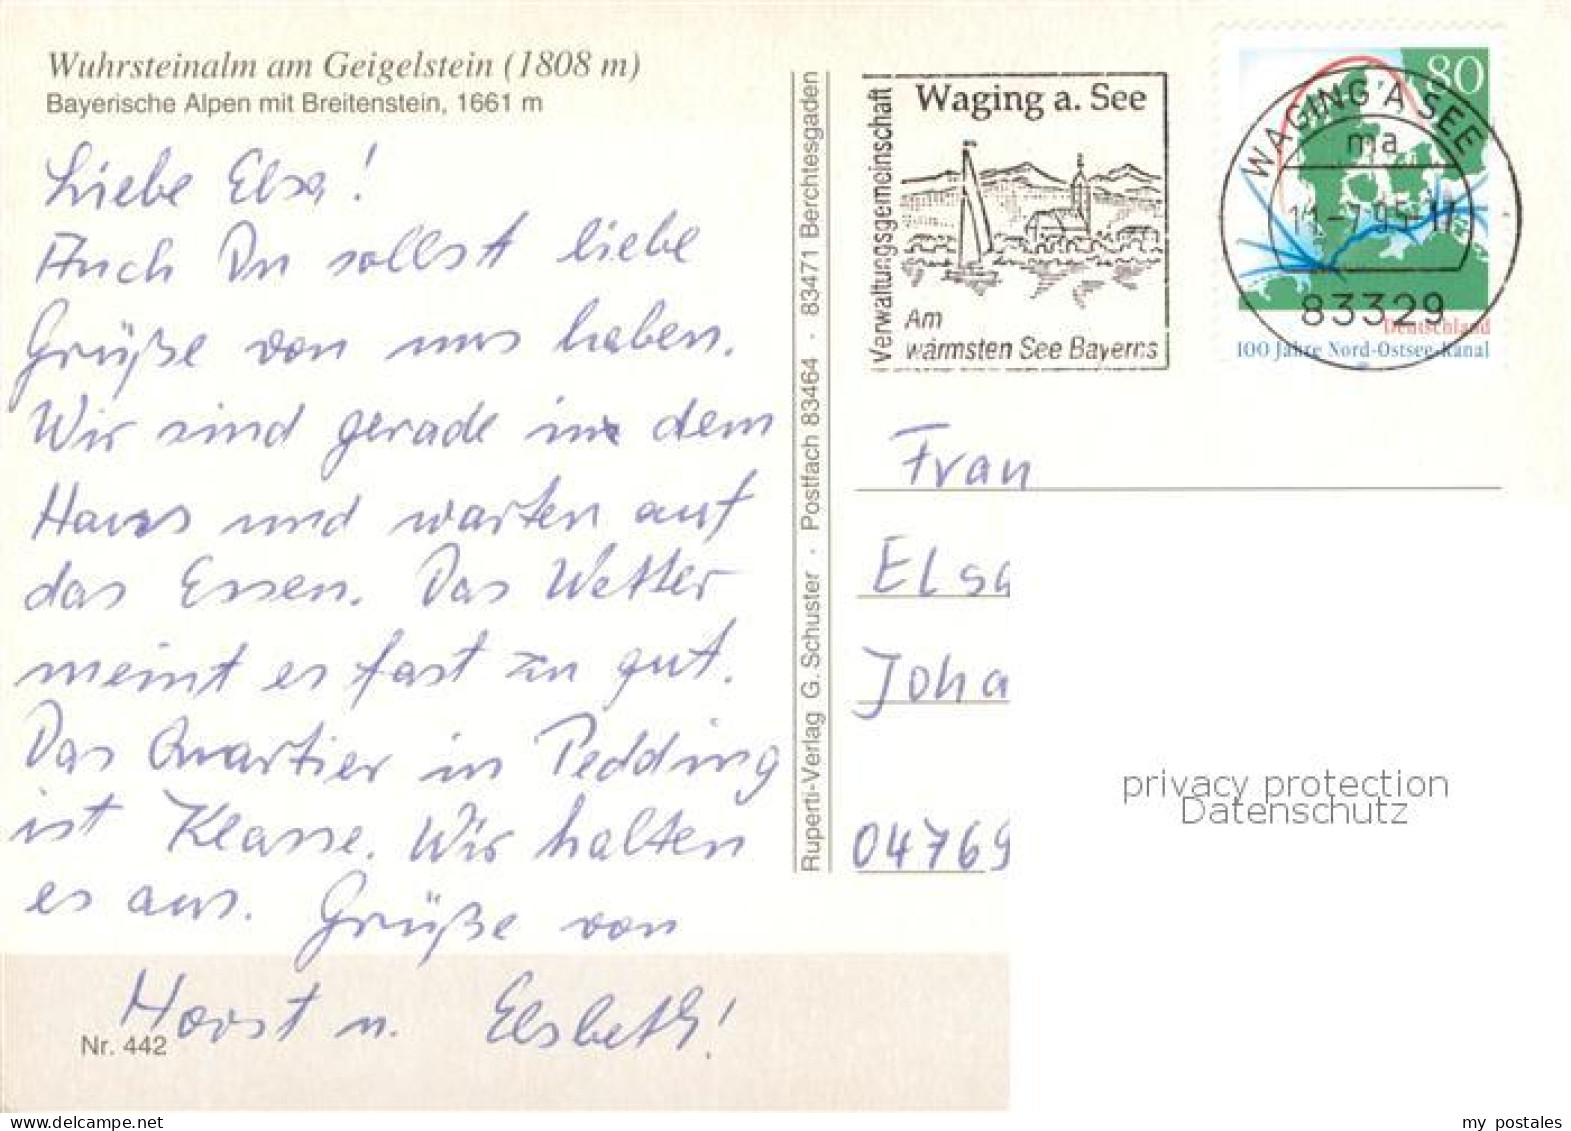 Wuhrsteinalm am Geigelstein (1808 m)
Bayerische Alpen mit Breitenstein, 1661 m
Liebe Elsa!
Auch Du sollst liebe
Grüße von uns haben.
Wir sind gerade in dem
Haus und warten auf
das Essen. Das Wetter
meint es fast zu gut.
Das Quartier in Pedding
ist Klasse. Wir halten
es aus. Grüße von
Horst u. Elsbeth!
Nr. 442
Ruperti-Verlag G. Schuster · Postfach 83464 · 83471 Berchtesgaden
Verwaltungsgemeinschaft
Waging a. See
Am
wärmsten See Bayerns
80
WAGING A SEE
ma
11-7.95-17
83329
Deutschland
100 Jahre Nord-Ostsee-Kanal
Frau
Elsa
Joha
04769
privacy protection
Datenschutz
my postales